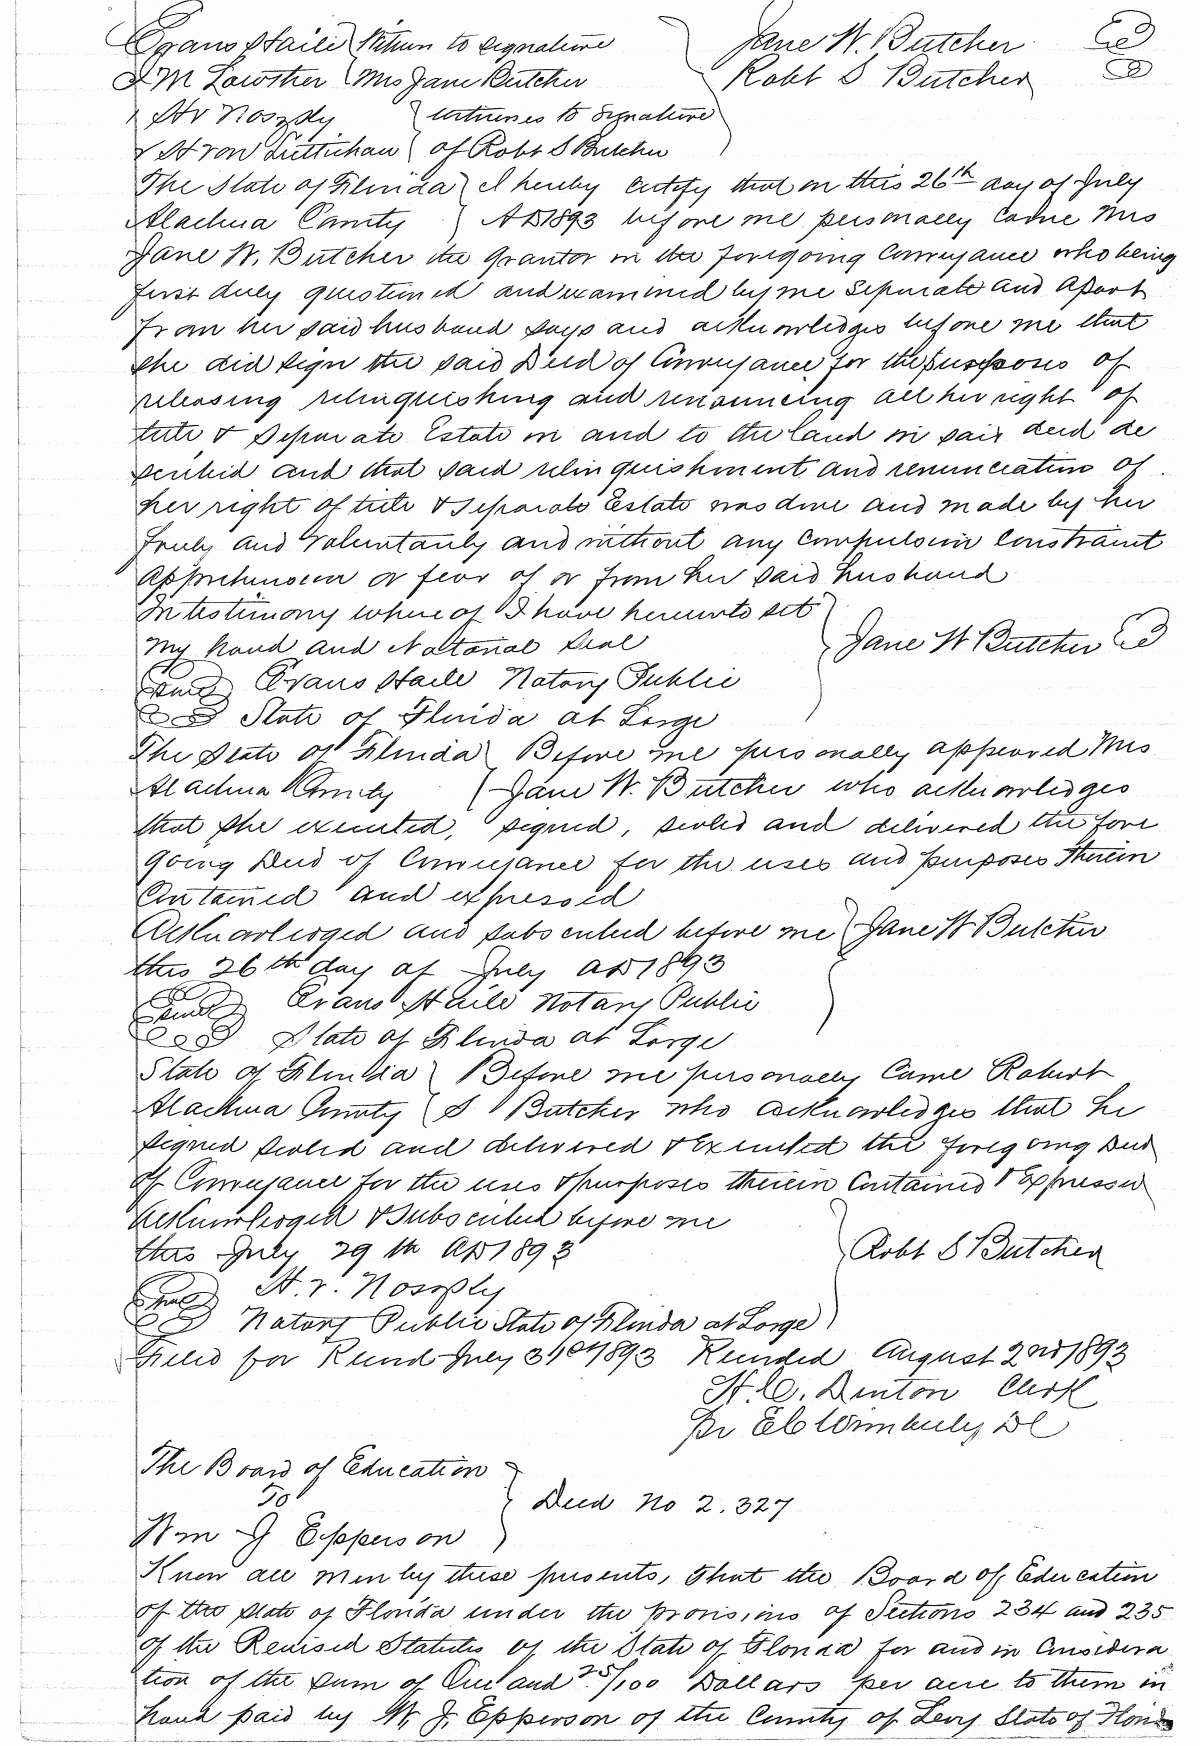 Evans Haile } Witness to signature } Jane W. Butcher
I M Lowther { Mrs Jane Butcher Robt S Butcher
{ witnesses to signature
{ of Robt S Butcher
The State of Florida } I hereby certify that on this 26th day of July
Alachua County } AD1893 before me personally came Mrs
Jane W. Butcher the grantor in the foregoing Conveyance who being
first duly questioned and examined by me Separate and Apart
from her said husband says and acknowledges before me that
she did sign the said Deed of Conveyance for the purposes of
releasing relinquishing and renouncing all her right of
title & Separate Estate in and to the land in said deed de
scribed and that said relinquishment and renunciation of
her right of title & Separate Estate was done and made by her
freely and voluntarily and without any compulsion constraint
Apprehension or fear of or from her said husband
In testimony where of I have hereunto set
my hand and Notarial Seal } Jane W Butcher
Seal Evans Haile Notary Public
State of Florida at Large
The State of Florida } Before me personally appeared Mrs
Alachua County { Jane W. Butcher who acknowledges
that she executed, signed, sealed and delivered the fore
going Deed of Conveyance for the uses and purposes therein
Contained and expressed
Acknowledged and subscribed before me } Jane W Butcher
this 26th day of July AD1893
Seal Evans Haile Notary Public
State of Florida at Large
State of Florida } Before me personally Came Robert
Alachua County { S Butcher who acknowledges that he
signed sealed and delivered & Executed the foregoing Deed
of Conveyance for the uses & purposes therein Contained & Expressed
Acknowledged & Subscribed before me
this July 29th AD1893 } Robt S Butcher
H. v.
Seal Notary Public State of Florida at Large
Filed for Record July 31st 1893 Recorded August 2nd 1893
H. C. Denton Clerk
Pr E C Wimberly DC
The Board of Education
To } Deed No 2.327
Wm J Epperson
Know all men by these presents, That the Board of Education
of the State of Florida under the provisions of Sections 234 and 235
of the Revised Statutes of the State of Florida for and in Considera
tion of the sum of One and 25/100 Dollars per acre to them in
hand paid by W. J. Epperson of the County of Levy State of Florida